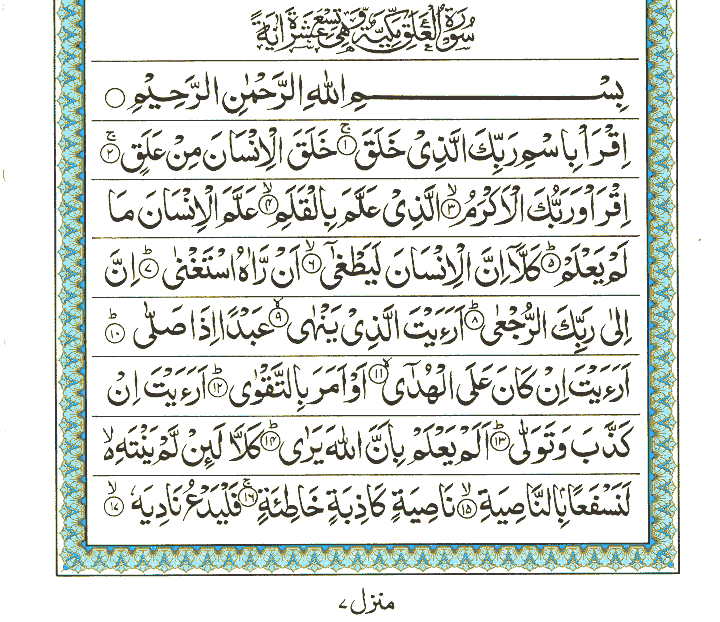 سُوْرَةُ الْعَلَقِ مَكِّيَّةٌ وَّهِىَ تِسْعَ عَشْرَةَ اٰيَةً
بِسْمِ اللهِ الرَّحْمٰنِ الرَّحِيْمِ ○
اِقْرَاْ بِاسْمِ رَبِّكَ الَّذِىْ خَلَقَ ۚ‏﴿۱﴾ خَلَقَ الْاِنْسَانَ مِنْ عَلَقٍ ۚ‏﴿۲﴾
اِقْرَاْ وَرَبُّكَ الْاَكْرَمُ ۙ‏﴿۳﴾ الَّذِىْ عَلَّمَ بِالْقَلَمِ ۙ‏﴿۴﴾ عَلَّمَ الْاِنْسَانَ مَا
لَمْ يَعْلَمْ ؕ‏﴿۵﴾ كَلَّاۤ اِنَّ الْاِنْسَانَ لَيَطْغٰٓى ۙ‏﴿۶﴾ اَنْ رَّاٰهُ اسْتَغْنٰى ؕ‏﴿۷﴾ اِنَّ
اِلٰى رَبِّكَ الرُّجْعٰى ؕ‏﴿۸﴾ اَرَءَيْتَ الَّذِىْ يَنْهٰى ۙ‏﴿۹﴾ عَبْدًا اِذَا صَلّٰى ؕ‏﴿۱۰﴾
اَرَءَيْتَ اِنْ كَانَ عَلَى الْهُدٰٓى ۙ‏﴿۱۱﴾ اَوْ اَمَرَ بِالتَّقْوٰى ؕ‏﴿۱۲﴾ اَرَءَيْتَ اِنْ
كَذَّبَ وَتَوَلّٰى ؕ‏﴿۱۳﴾ اَلَمْ يَعْلَمْ بِاَنَّ اللهَ يَرٰى ؕ‏﴿۱۴﴾ كَلَّا لَئِنْ لَّمْ يَنْتَهِ ۙ
لَنَسْفَعًۢا بِالنَّاصِيَةِ ۙ‏﴿۱۵﴾ نَاصِيَةٍ كَاذِبَةٍ خَاطِئَةٍ ۚ‏﴿۱۶﴾ فَلْيَدْعُ نَادِيَهٗ ۙ‏﴿۱۷﴾
منزل ۷